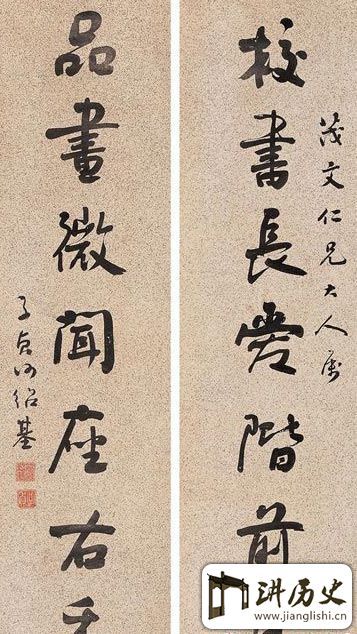 茂文仁兄大人屬
校書長愛階前
品畫微聞座右
子貞何紹基
讲历史
www.jianglishi.cn